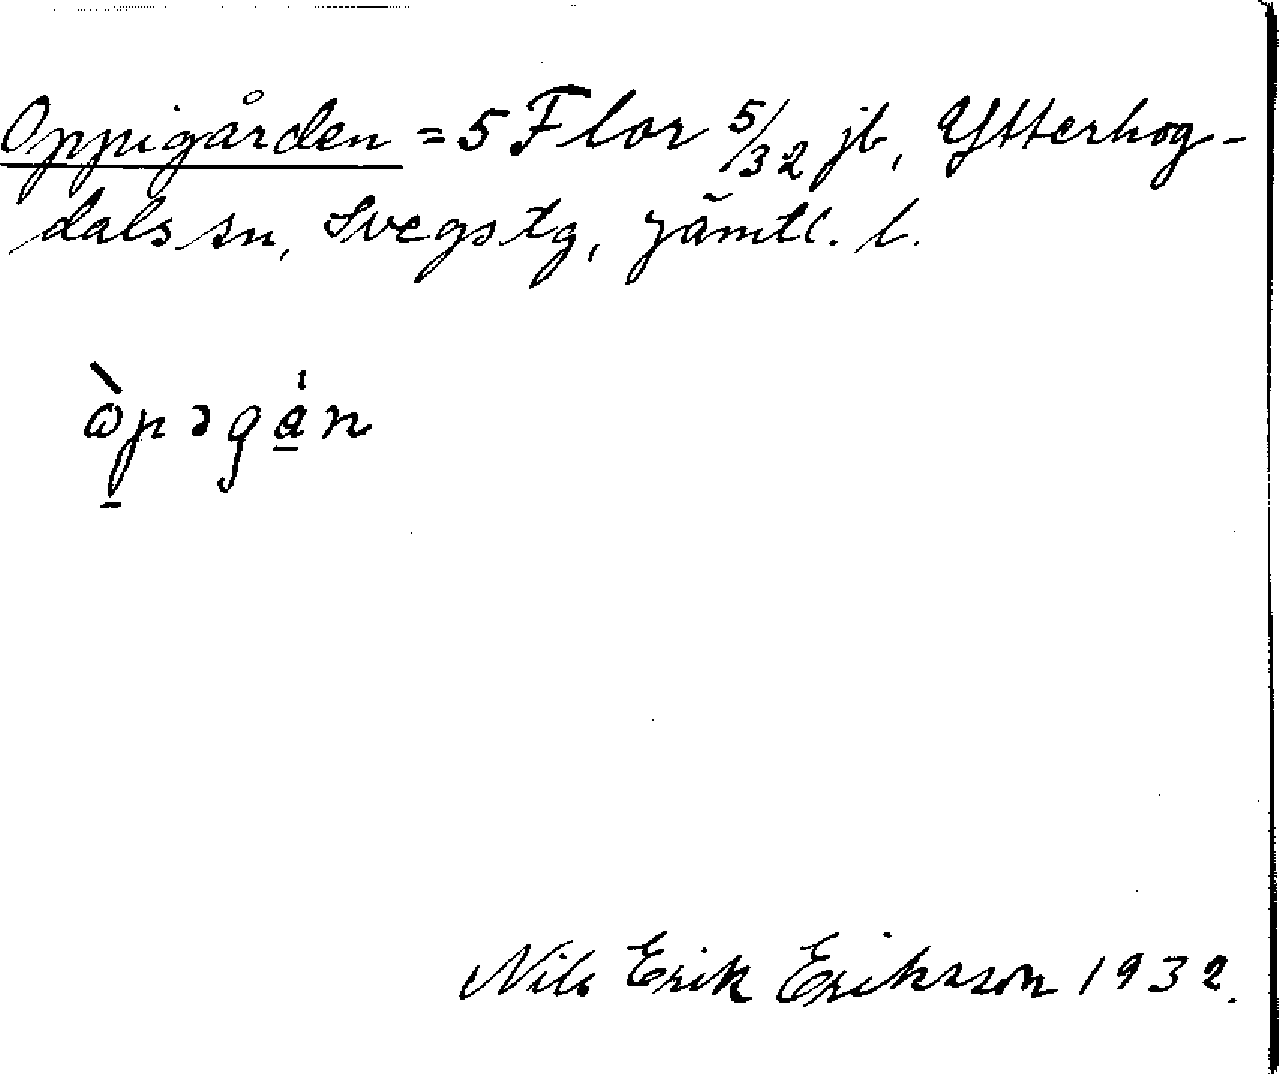 Oppigården = 5 Flor 5/32 jb, Ytterhog-
dals sn, Svegs tg, Jämtl. l.
ɷ̀p̱əgа̱̍n
Nils Erik Eriksson 1932.